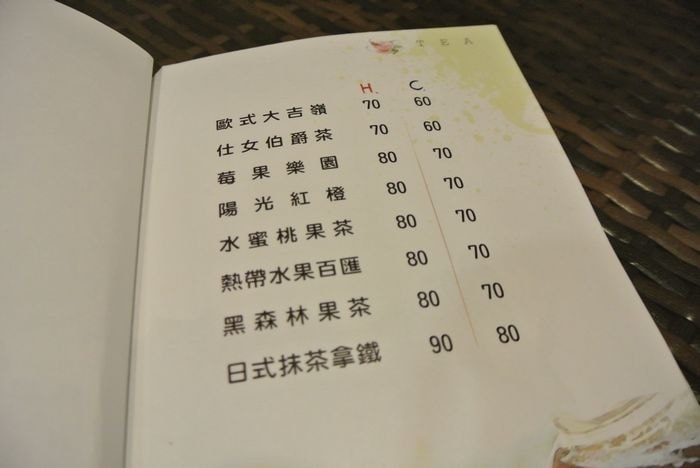 TEA
H. C.
歐式大吉嶺 70 60
仕女伯爵茶 70 60
莓果樂園 80 70
陽光紅橙 80 70
水蜜桃果茶 80 70
熱帶水果百匯 80 70
黑森林果茶 80 70
日式抹茶拿鐵 90 80